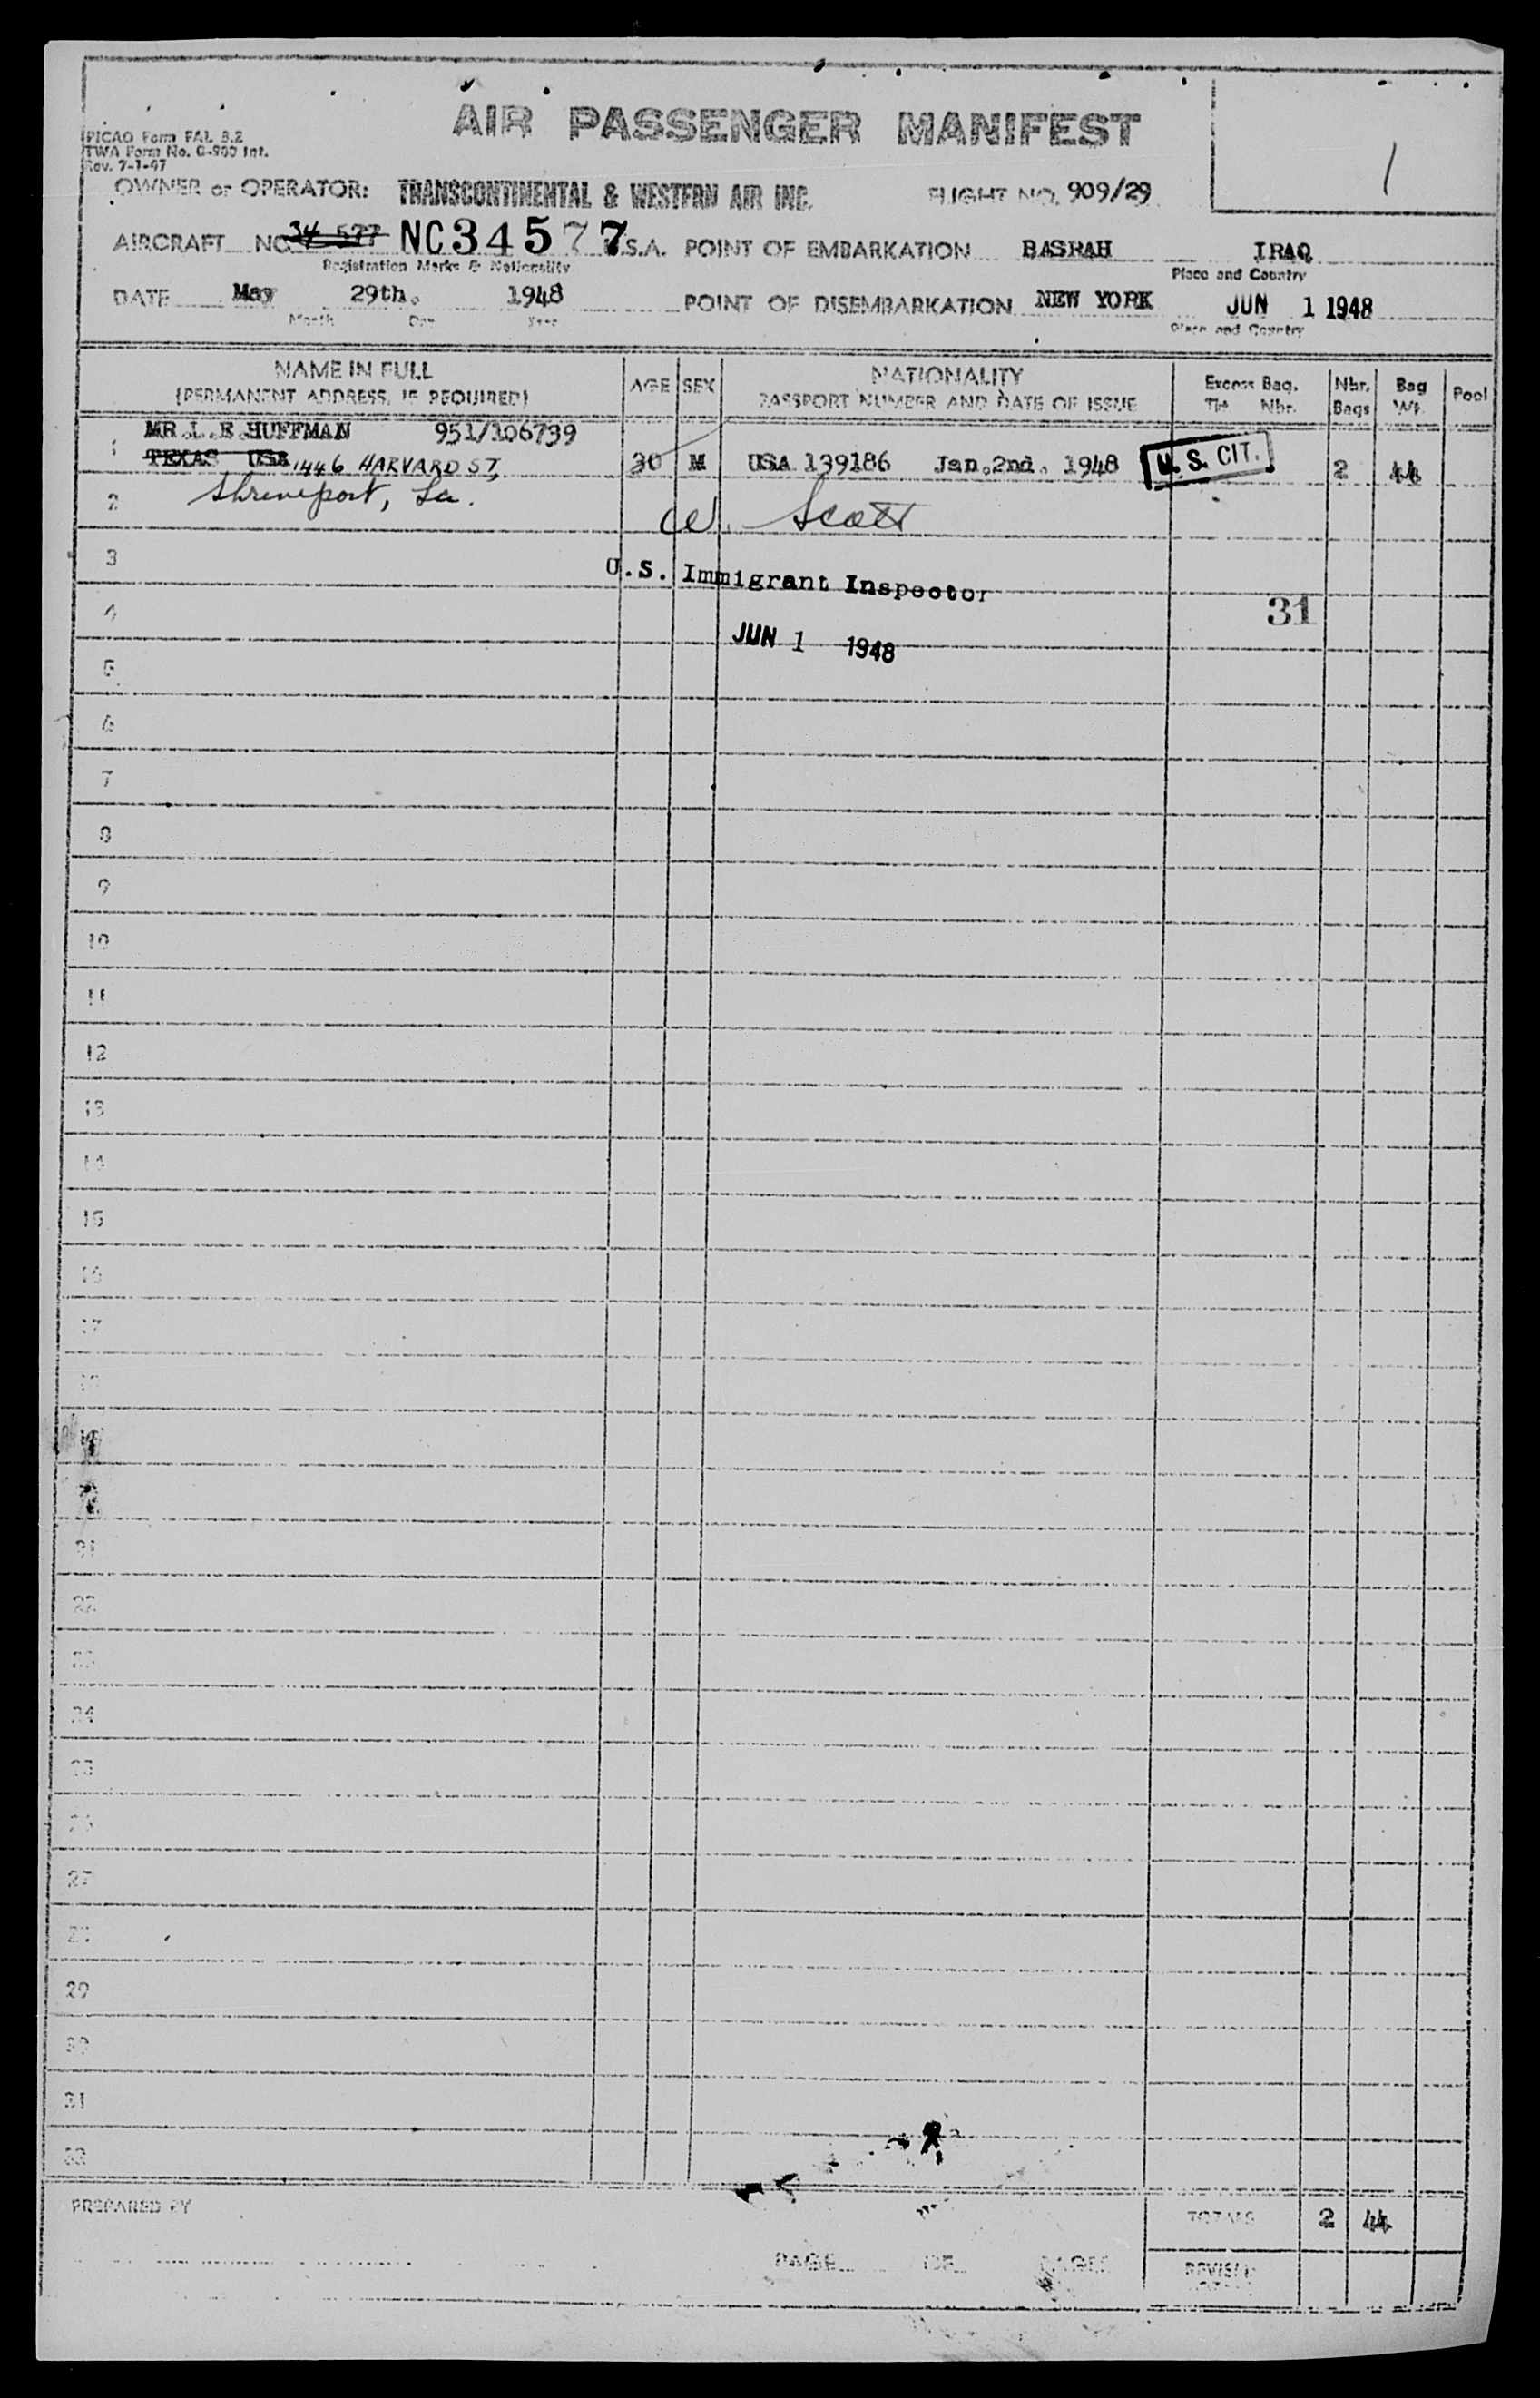 AIR PASSENGER MANIFEST
PICAO Form FAL 8.2
TWA Form No. G-900 Int.
Rev. 7-1-47
1
OWNER or OPERATOR: TRANSCONTINENTAL & WESTERN AIR INC. FLIGHT NO. 909/29
AIRCRAFT NO. 34 577 NC34577 U.S.A. POINT OF EMBARKATION BASRAH IRAQ
Registration Marks & Nationality Place and Country
DATE May 29th. 1948 POINT OF DISEMBARKATION NEW YORK JUN 1 1948
Month Day Year Place and Country
NAME IN FULL AGE SEX NATIONALITY Excess Bag. Nbr. Bag Pool
(PERMANENT ADDRESS, IF REQUIRED) PASSPORT NUMBER AND DATE OF ISSUE Tkt Nbr. Bags Wt.
MR L.E HUFFMAN 951/106739
1 TEXAS USA 1446 HARVARD ST, 30 M USA 139186 Jan.2nd. 1948 U.S. CIT. 2 44
2 Shreveport, La.
W. Scott
3
U.S. Immigrant Inspector
4 31
JUN 1 1948
5
6
7
8
9
10
11
12
13
14
15
16
17
21
22
23
24
25
26
27
29
30
31
PREPARED BY TOTALS 2 44
PAGE OF PAGES REVISED